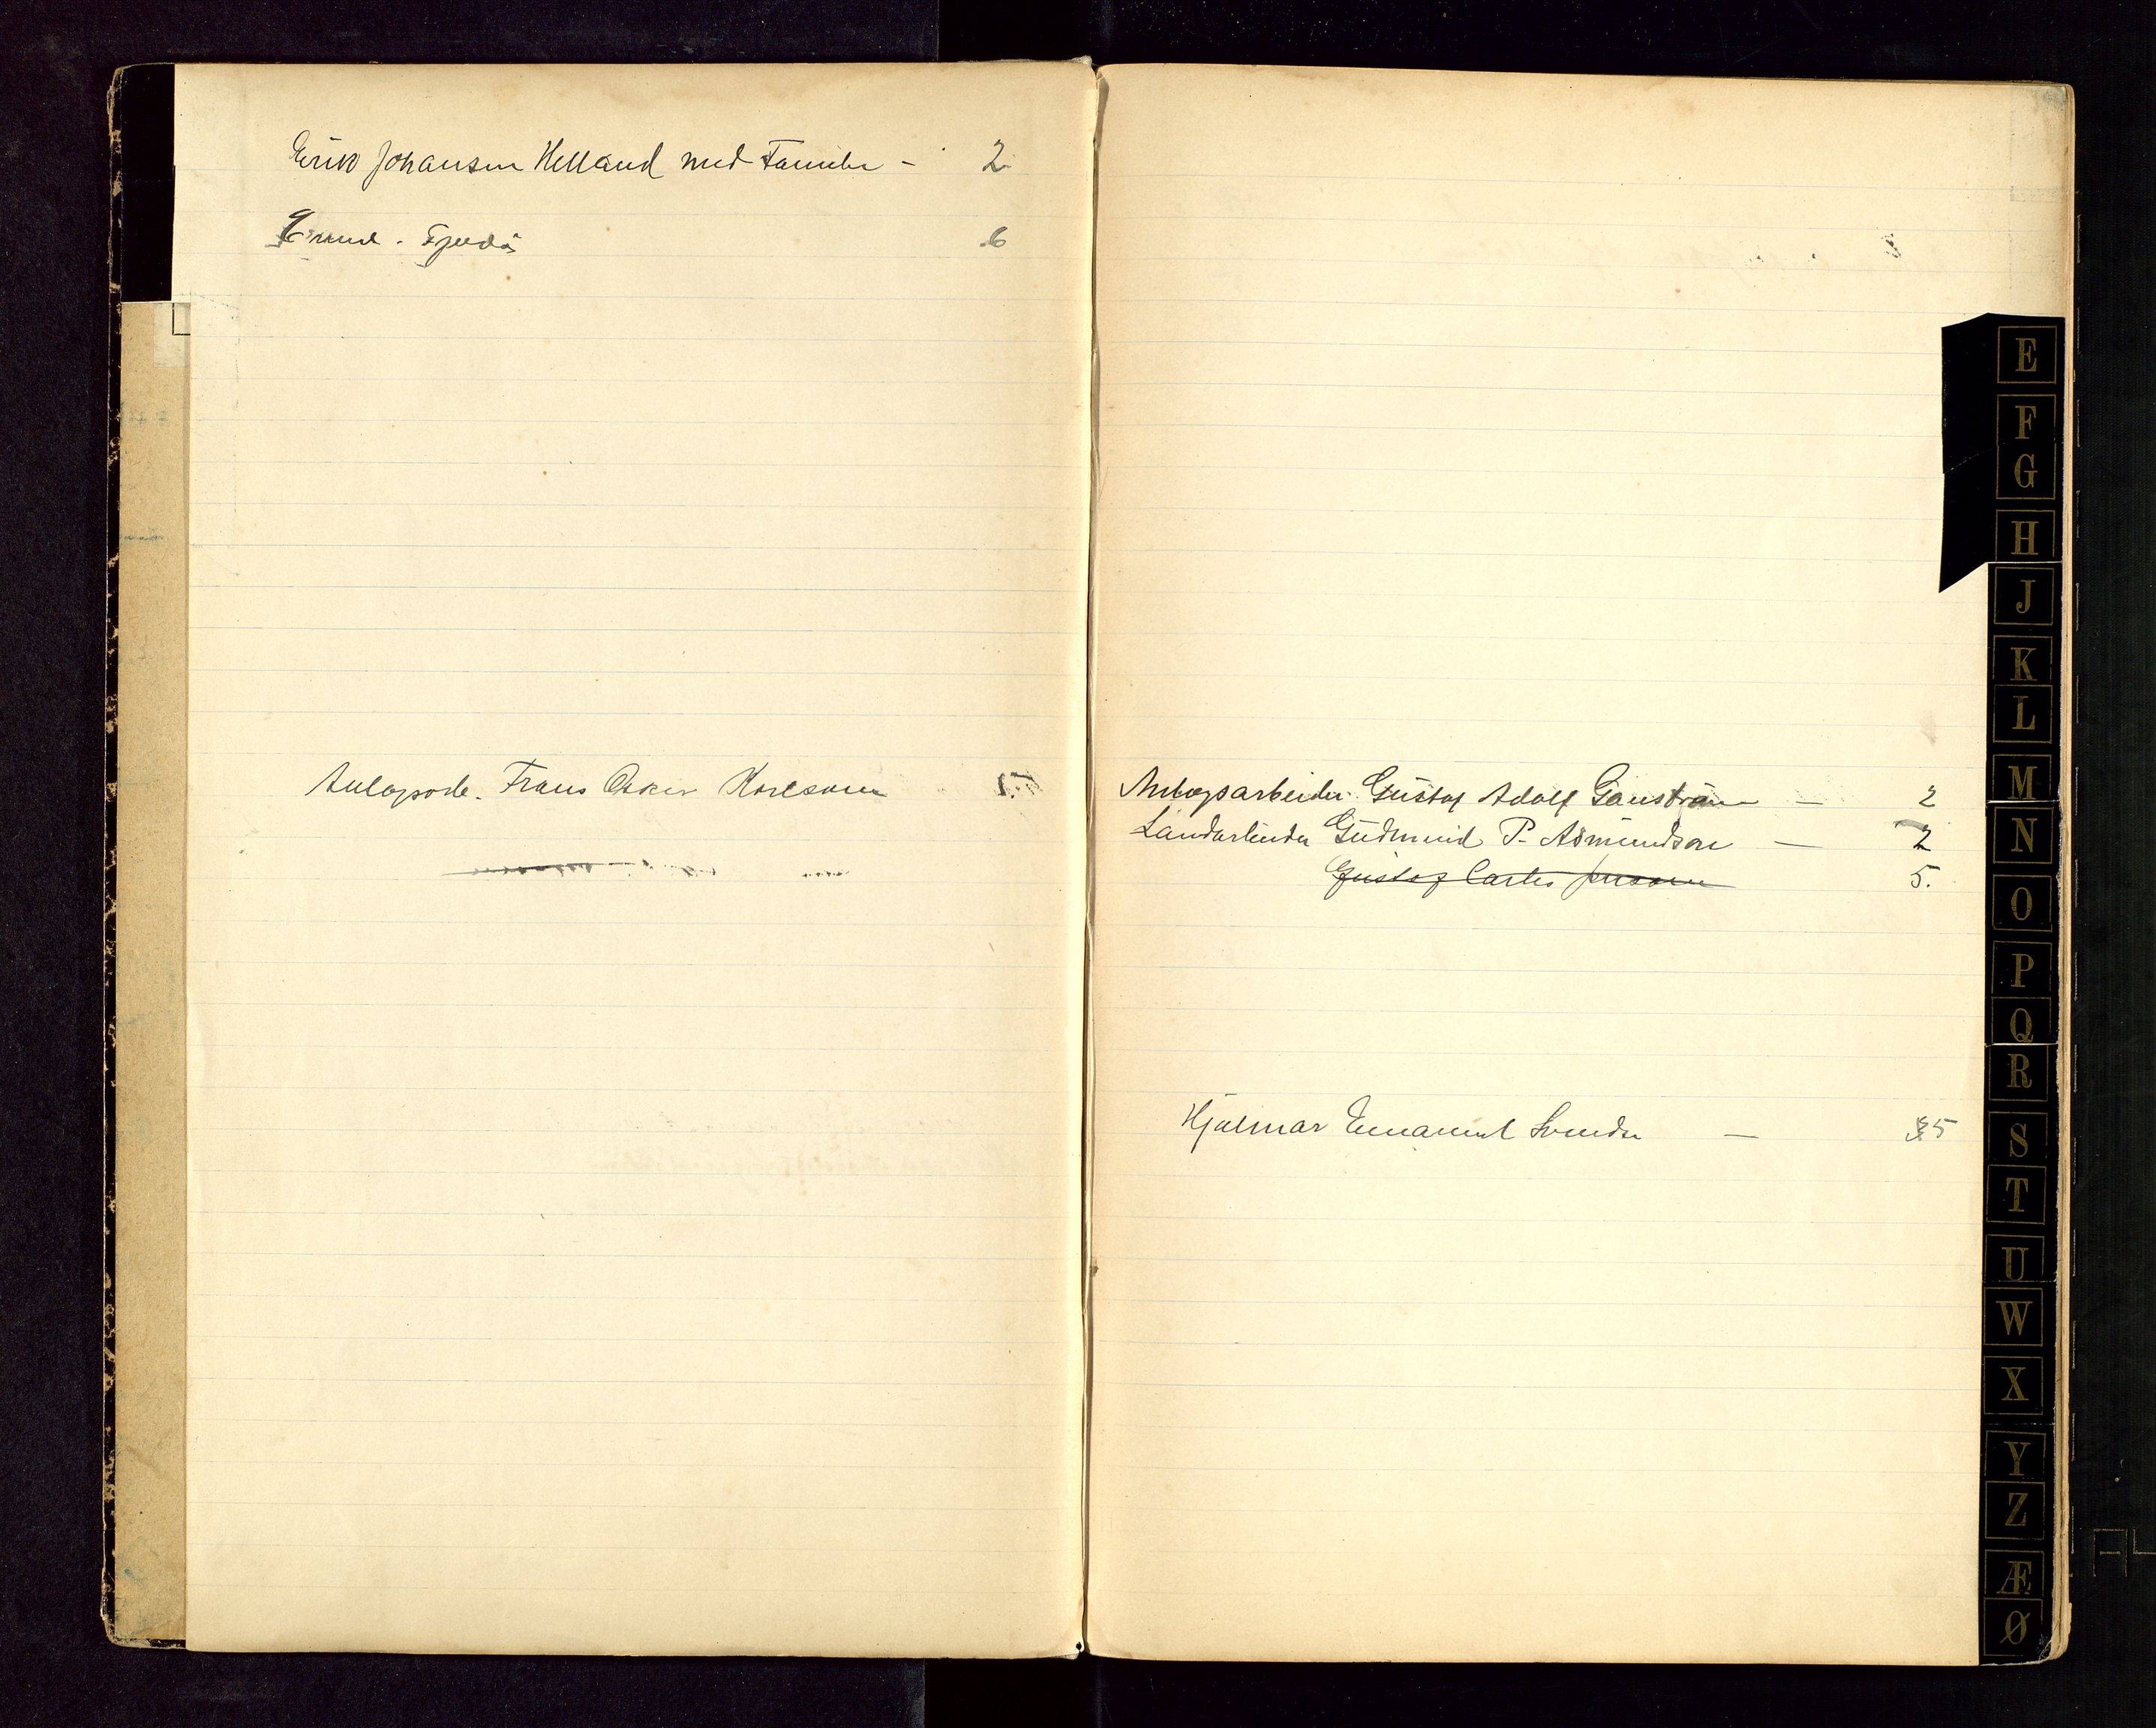 Erik Johansen Helland med Familie - 2
6
Frans Oskar Karlsson 5.
Anlægsarbeider Gustaf Adolf Ganström — 2
Landarbeider Gudmund P. Asmundson — 2
Gustaf Carlos 5.
Hjalmar Emanuel — 35
E
F
G
H
J
K
L
M
N
O
P
Q
R
S
T
U
W
X
Y
Z
Æ
Ø